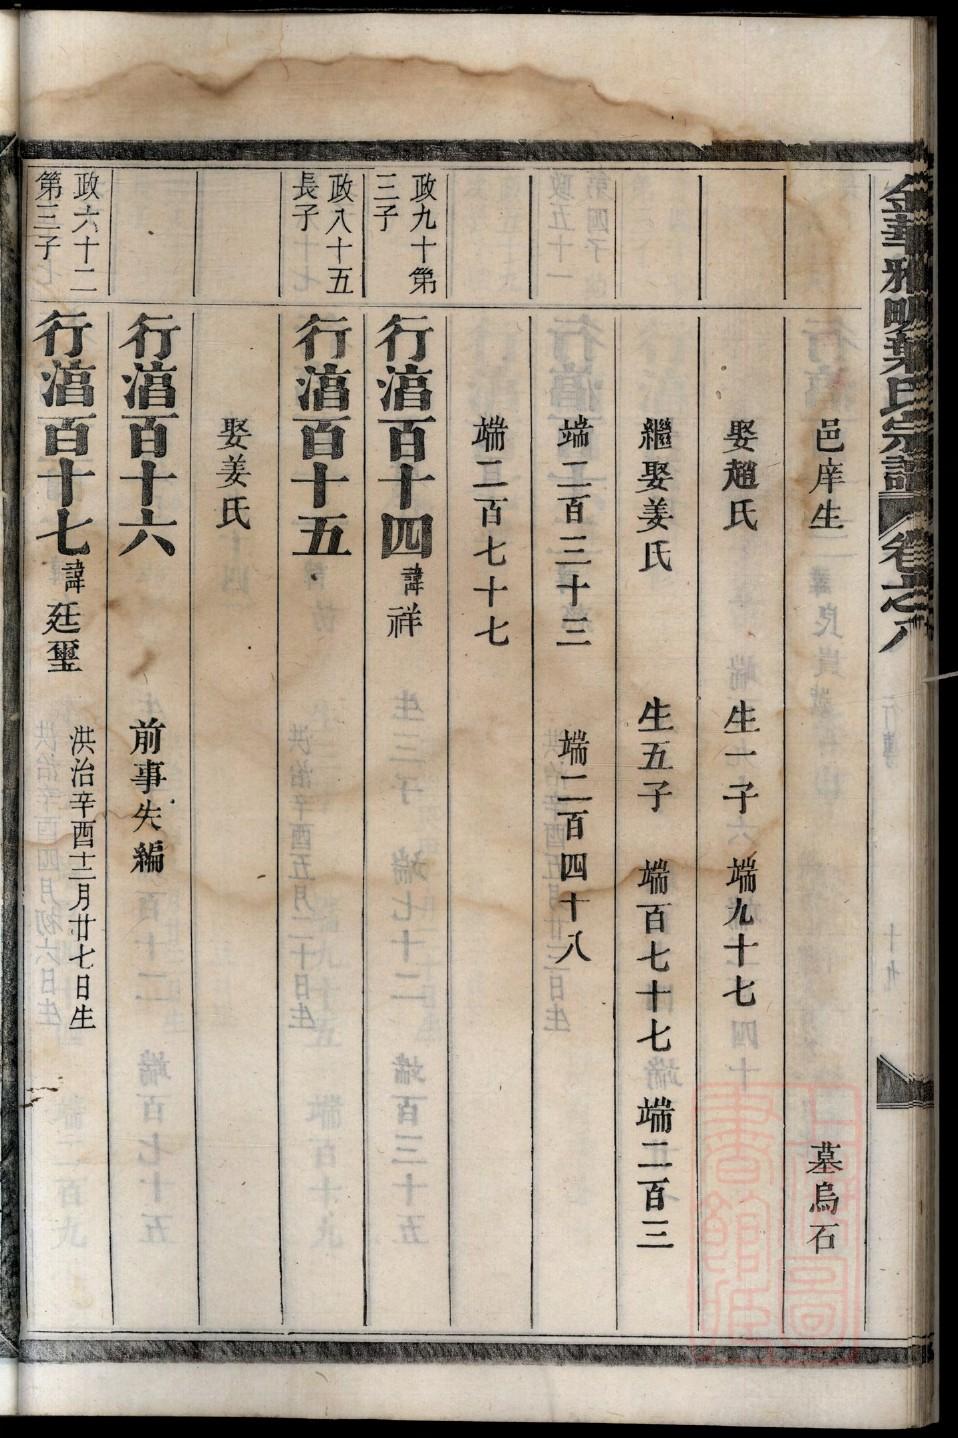 金華雅畈葉氏宗譜 卷之八
邑庠生 墓烏石
娶趙氏 生一子 端九十七
繼娶姜氏 生五子 端百七十七 端二百三
端二百三十三 端二百四十八
端二百七十七
政九十第三子
行湻百十四 諱祥
政八十五長子
行湻百十五
娶姜氏
行湻百十六 前事失編
政六十二第三子
行湻百十七 諱廷璽 洪治辛酉十二月廿七日生